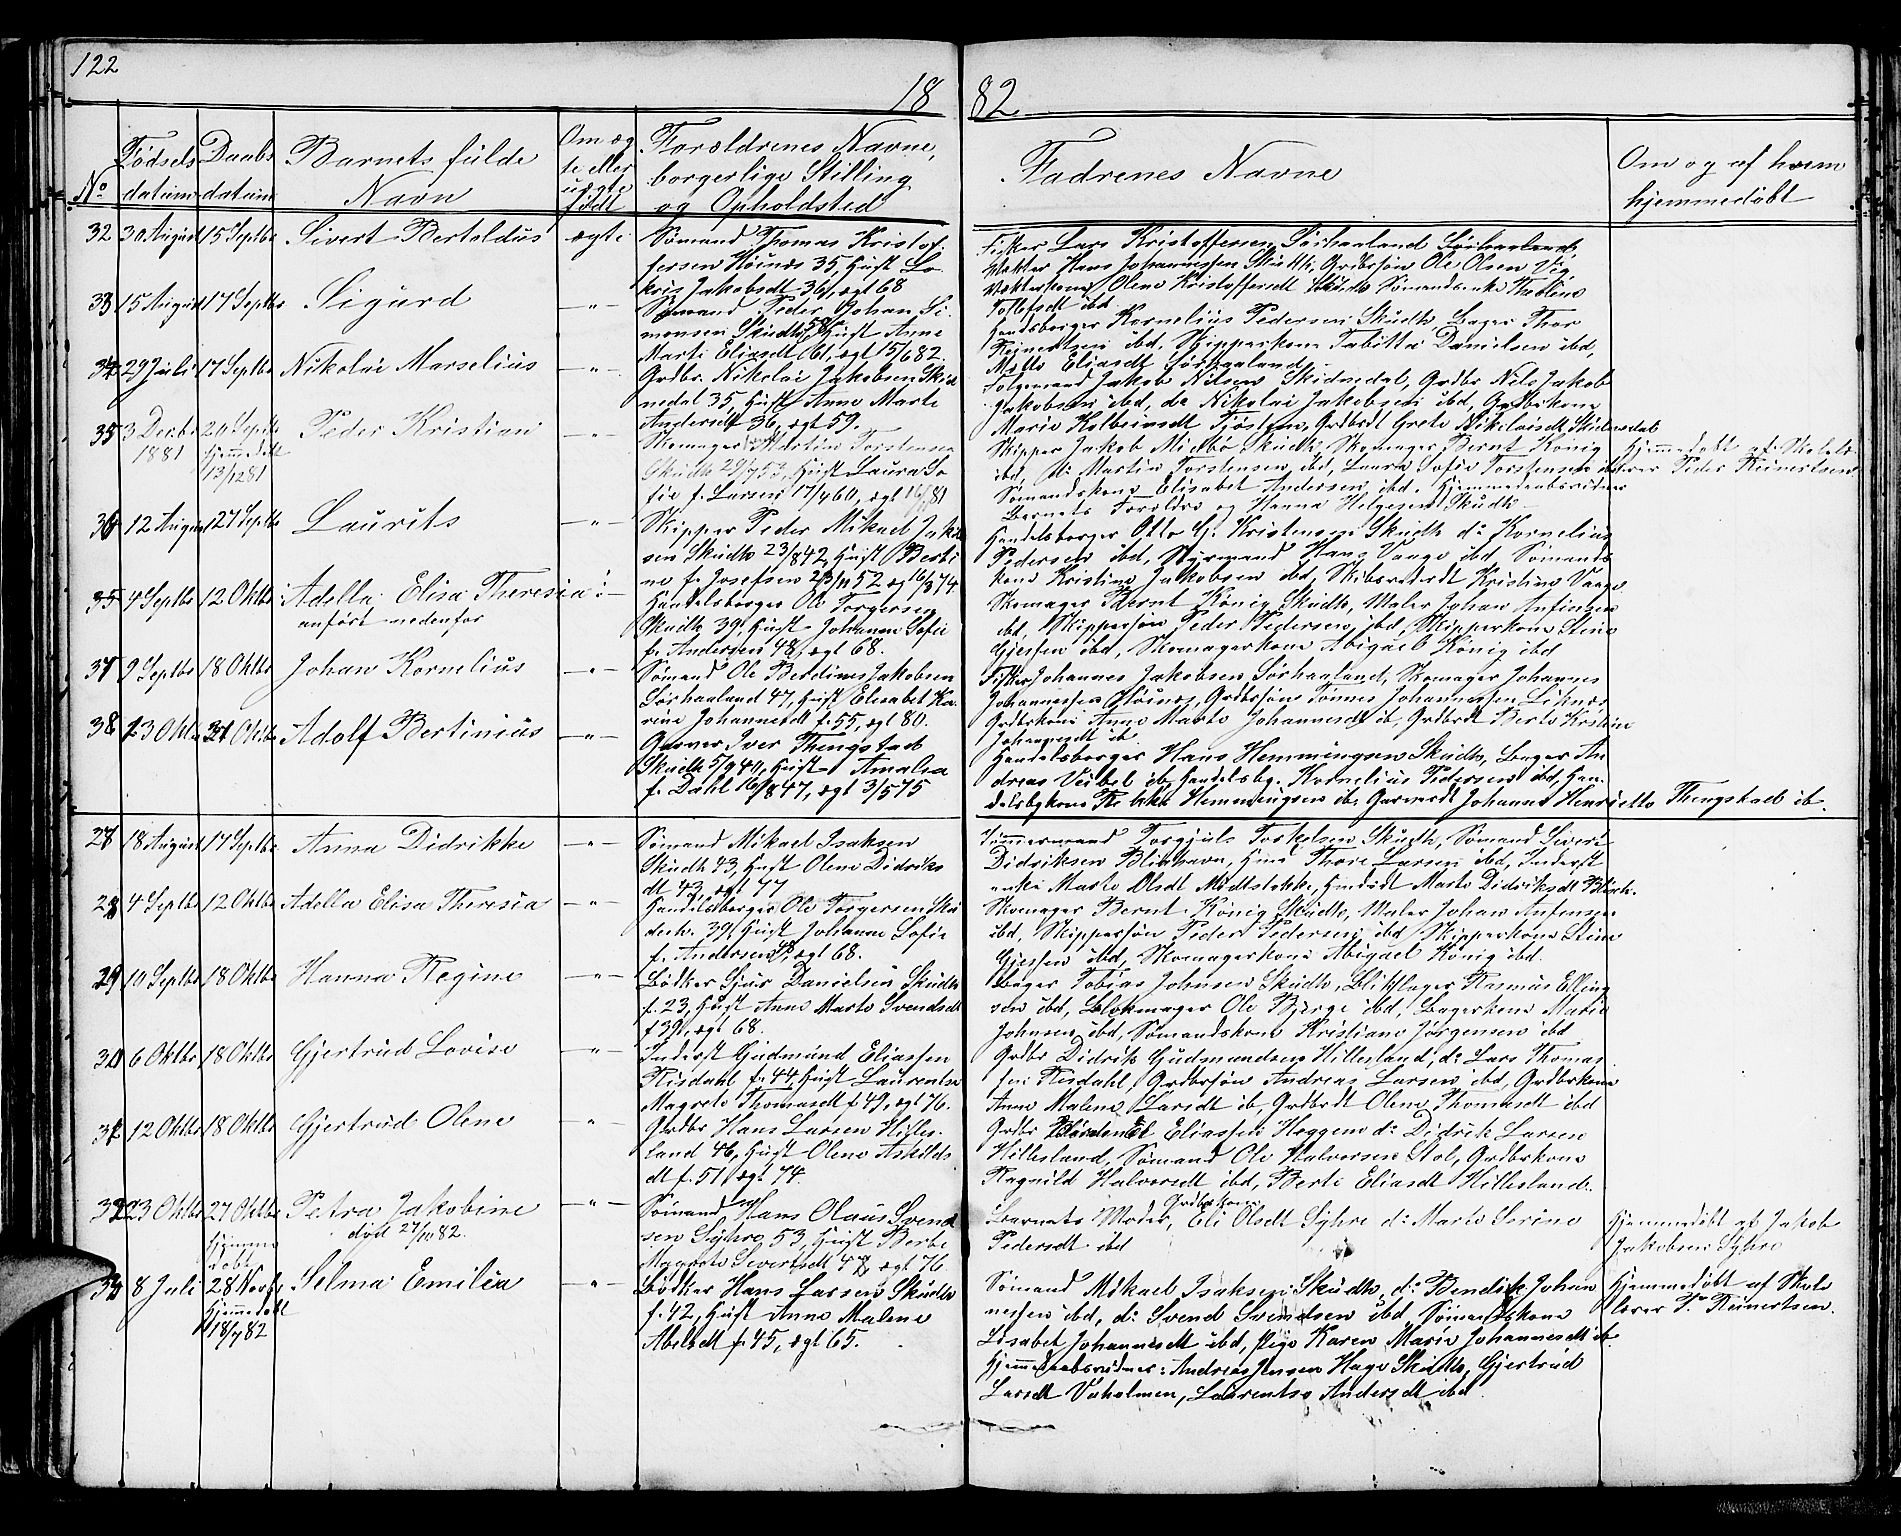 122
18 82.
No
Fødsels datum
Daabs datum
Barnets fulde Navn
Om æg te eller uægte født
Forældrenes Navne, borgerlige Stilling og Opholdsted
Fadrenes Navne
Om og af hvem hjemmedøbt
32 30 August 15 Septbr Sivert Bertoldus ægte
Sømand Thomas Kristof
fersen Høinæs 35, Hust Lo
kris Jakobsdt 36, ægt 68
Fisker Lars Kristoffersen Sørhaaland
Vækter Hans Johannessen Skudh, Grdbrsøn Ole Olsen Vig
Vækterkone Olene Kristoffersdt Skudh Sømandsenke
Tollefsdt ibd.
33 15 August 17 Septbr Sigurd -"-
Sømand Peder Johan Si
monsen Skudh 58, Hust Anne
Marti Eliasdt 61, ægt 15/6 82.
Handelsborger Kornelius Pedersen Skudh, Bager Thor
Reinertsen ibd, Skipperkone Tabitta Danielsen ibd,
Eliasdt Sørhaaland
34 29 Juli 17 Septbr Nikolai Marselius -"-
Grdbr. Nikolai Jakobsen Skid
nedal 35, Hust Anne Marte
Andersdt 36, ægt 59.
Følgemand Jakob Nilsen Skidnedal, Grdbr Nils Jakob
Jakobsen ibd, do Nikolai Jakobsen ibd, Grdbrkone
Marie Kolbeinsdt Tjøsten, Grdbrdt Grete Nikolaisdt Skidnedal
35 3 Decbr 1881 24 Septbr Hjemmedøbt 13/12 81 Peder Kristian -"-
Skomager Martin Torstensen
Skudh 29/7 53, Hust Laura So
fie f. Larsen 17/4 60, ægt 81
Skipper Jakob Midbø Skudh, Skomager Bernt König
ibd, do Martin Torstensen ibd, Laura Sofie Torstensen ibd
Sømandskone Elisabet Andersen ibd. Hjemmedaabsvidner
Barnets Forældre og Hanna Helgesen Skudh
Hjemmedøbt af Skolelæ
rer Peder Reinertsen
36 12 August 27 Septbr Laurits -"-
Skipper Peder Mikael Jakob
sen Skudh 23/8 42, Hust Berti
ne f. Josefsen 23/11 52 ægt 16/3 74.
Handelsborger Otto G. Kristensen Skudh do Kornelius
Pedersen ibd, Styrmand Hans Vaage ibd, Sømands
kone Kristine Jakobsen ibd, Skibsrederdt Kristine Vaage
35 4 Septbr 12 Oktbr Adella Elisa Theresia anført nedenfor
Handelsborger Ole Torgersen
Skudh 39, Hust Johanne Sofie
f. Andersen 48, ægt 68.
Skomager Bernt König Skudh, Maler Johan Anfinsen
ibd, Skippersøn Peder Pedersen ibd, Skipperkone Stine
Gjessen ibd, Skomagerkone Abigael König ibd
37 9 Septbr 18 Oktbr Johan Kornelius -"-
Sømand Ole Berdines Jakobsen
Sørhaaland 47, Hust Elisabet Ka
rine Johannesdt f. 55, ægt 80.
Fisker Johannes Jakobsen Sørhaaland, Skomager Johannes
Johannessen Høinæs, Grdbrsøn Tønnes Johannessen Liknæs
Grdbrkone Anne Marte Johannesdt ib, Grdbrdt Berte Kristine
Johannesdt ib
38 13 Oktbr 31 Oktbr Adolf Bertinius -"-
Garver Iver Thengstad
Skudh 5/9 40, Hust Amalia
f. Dahl 16/8 47, ægt 3/5 75
Handelsborger Hans Hemmingsen Skudh, Bager An
dreas Veibel ib, Handelsbg. Kornelius Pedersen ibd, Han
delsbgkone Hemmingsen ib, Garverdt Johanne Henriette Thengstad ib.
27 18 August 17 Septbr Anna Didrikke -"-
Sømand Mikael Isaksen
Skudh 43, Hust Olene Didriks
dt 43, ægt 77
Tømmermand Torgjuls Torkelsen Skudh, Sømand Sivert
Didriksen Blikhavn, Hmd Thore Larsen ibd, Inderst
enke Marte Olsdt Midtstokke, Hmdsdt Marte Didriksdt Blikh.
28 4 Septbr 12 Oktbr Adella Elisa Theresia -"-
Handelsborger Ole Torgersen Sku
deshv. 39, Hust Johanne Sofie
f. Andersen 48, ægt 68.
Skomager Bernt König Skudh, Maler Johan Anfinsen
ibd, Skippersøn Peder Pedersen ibd, Skipperkone Stine
Gjessen ibd, Skomagerkone Abigael König ibd.
29 10 Septbr 18 Oktbr Hanna Regine -"-
Bødker Sjur Danielsen Skudh
f. 23, Hust Anne Marte Svendsdt
f 39, ægt 68.
Bager Tobias Johnsen Skudh, Blikslager Rasmus Elling
sen ibd, Blokmager Ole Bjerge ibd, Bagerkone Marie
Johnsen ibd, Sømandskone Kristiane Jørgensen ibd
30 6 Oktbr 18 Oktbr Gjertrud Lovise -"-
Inderst Gudmund Eliassen
Risdahl f. 44, Hust Laurentse
Magrete Thomasdt f 49, ægt 76.
Grdbr Didrik Gudmundsen Hillesland, do Lars Thomas
sen Risdahl, Grdbrsøn Andreas Larsen ibd, Grdbrkone
Anne Malene Larsdt ib, Grdbrdt Olene Thomasdt ibd
31 12 Oktbr 18 Oktbr Gjertrud Olene "
Grdbr Hans Larsen Hilles
land 46, Hust Olene Askilds
dt f. 51, ægt 74.
Grdbr Eliassen Heggem do Didrik Larsen
Hillesland, Sømand Ole Halvorsen Stol, Grdbrkone
Ragnild Halvorsdt ibd, Berte Eliasdt Hillesland.
32 23 Oktbr 27 Oktbr hjemme døbt Petra Jakobine død 27/10 82. "
Sømand Hans Olaus Svend
sen Syhre 53, Hust Berte
Magrete Sivertsdt 47, ægt 76
Barnets Moder, Grdbrkone Eli Olsdt Syhre do Marte Serine
Pedersdt ibd
Hjemmedøbt af Jakob
Jakobsen Syhre
33 8 Juli 28 Novbr Hjemmedøbt 18/7 82 Selma Emilia "
Bødker Hans Larsen Skudh
f. 42, Hust Anne Malene
Abelsdt f. 45, ægt 65.
Sømand Mikael Isaksen Skudh, do Bendik Johan
nessen ibd, do Svend Svendsen ibd, Sømandskone
Lisabet Johannesdt ibd, Pige Karen Marie Johannesdt ib
Hjemmedaabsvidner: Andreas Jensen Hage Skudh, Gjertrud
Larsdt Vaholmen, Laurentse Andersdt ibd
Hjemmedøbt af Skole
lærer P. Reinertsen.